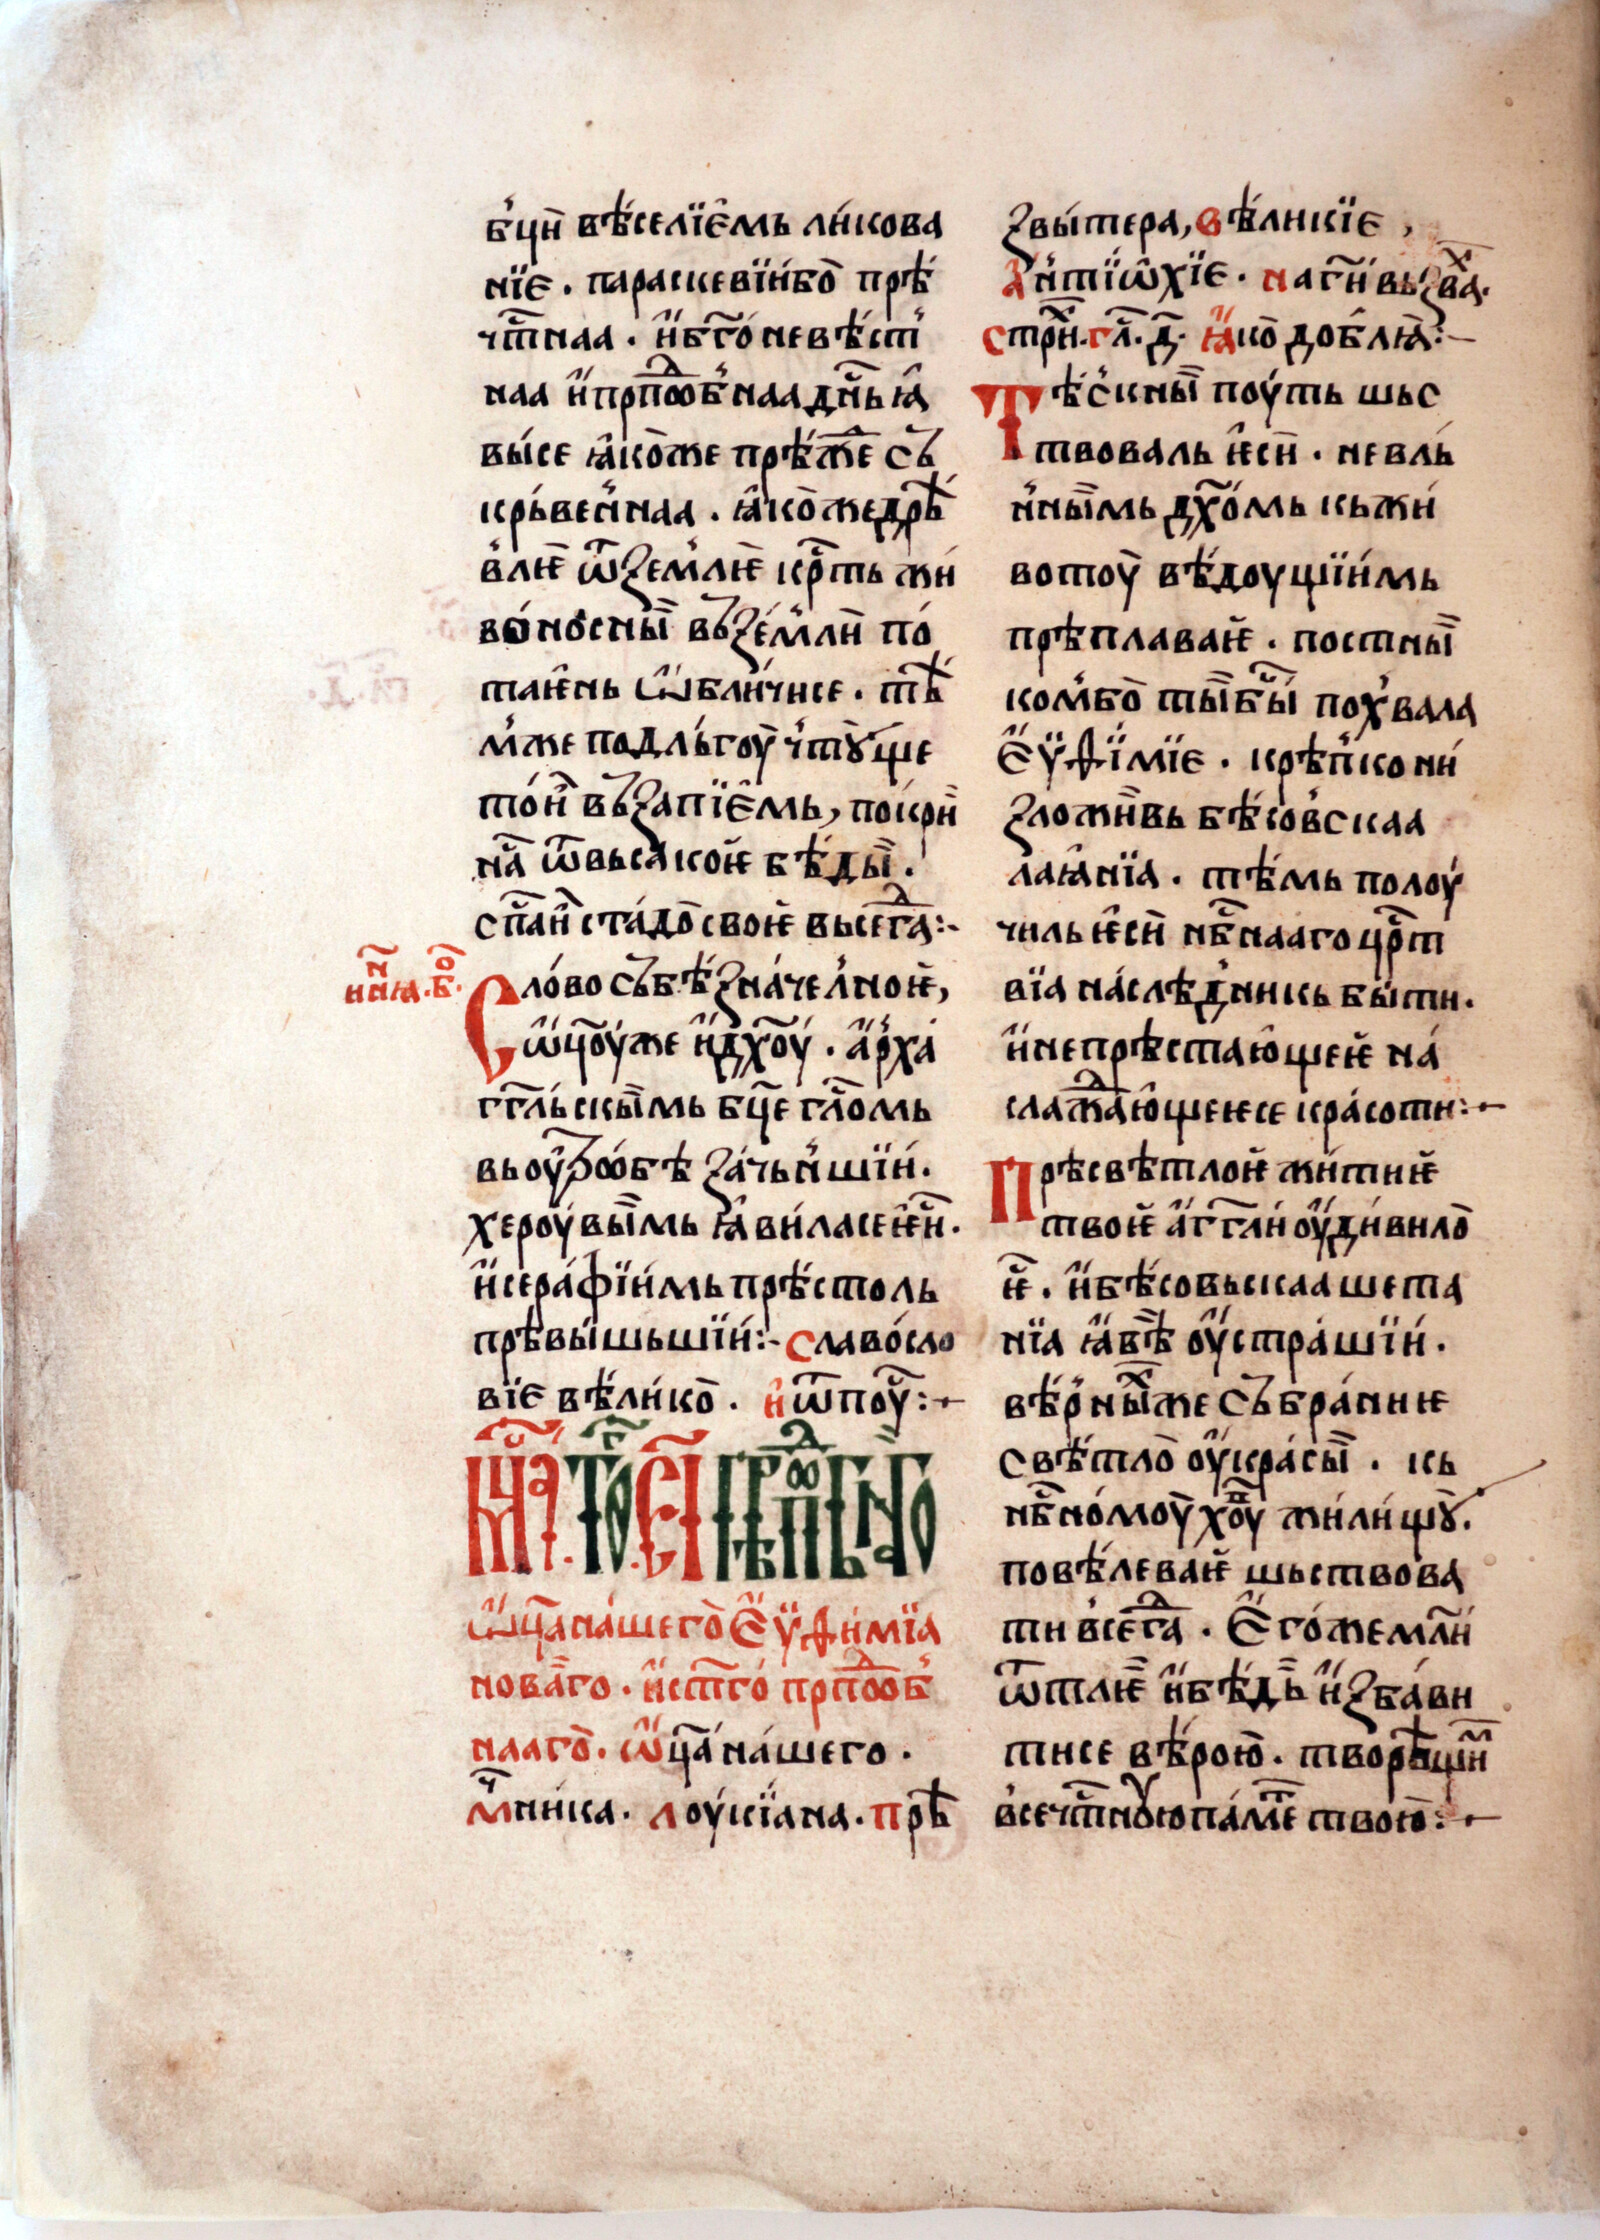 бц҃и вѣселїемь ликова
нїе. параскевїи бо прѣ
чⷭ҇тнаа. и б҃гоневѣст
наа и прпⷣѡбнаа дн҃ь ꙗ
высе ꙗкоже прѣжⷣе съ
крьвеннаа. ꙗкоже дрѣ
влѥ ѿ землѥ крⷭ҇ть жи
воносныи въ земли по
таѥнь ѡбличисе. тѣ
мже подльгоу чтꙋще
тои възапїемь, покри
на ѿ вьсакоѥ бѣды.
сп҃аи стадо своѥ вьсегⷣа:-
ннꙗ. б.
Слово събѣзначелноѥ,
ѡц҃оуже и дх҃оу. арха
гг҃льскымь бц҃е глⷭ҇омь
вь оутробѣ зачьншїи.
хероувымь ꙗвиласе ѥси.
и серафїимь прѣстоль
прѣвышьшїи:- славосло
вїе вѣлико. и ѿпоуⷭ҇:-
Мцⷭ҇а. тогⷤо. еі. прⷣѣпⷣѡбно
ѡц҃а нашего Еѵѳимїа
новаго. и ст҃го прпⷣѡб
нааго. ѡц҃а нашего.
мч҃ника. лоукїана. прѣ
звытера, вѣликїе,
антїѡхїе. на гн҃и възва.
стрⷯи. гл҃. д҃. ꙗко добляꙗ:-
Тѣскныи поуть шьс
твоваль ѥси. невль
ннымь дх҃омь кь жи
вотоу вѣдоущїимь
прѣплаваѥ. постны
комбо ты быⷭ҇ похвала
Еѵѳїмїе. крѣпко ни
зложивь бѣсовскаа
лаꙗнїа. тѣмь полоу
чиль ѥси нбⷭ҇нааго црⷭ҇т
вїа наслѣдникь быти.
и непрѣстающеѥ на
слажⷣающеѥсе красоти:-
Прѣсвѣтлоѥ житиѥ
твоѥ агг҃ли оудивило
ѥⷭ҇. и бѣсовьскаа шета
нїа ꙗвѣ оустрашїи.
вѣрныⷯже събраниѥ
свѣтло оукрасы. кь
нбⷭ҇номоу хв҃оу жилищꙋ.
повѣлеваѥ шьствова
ти всегⷣа. Егоже мл҃и
ѿ тлѥ и бѣдь избави
тисе вѣрою. творещиⷨ
всечⷭ҇тнꙋю памеⷮ твою:-